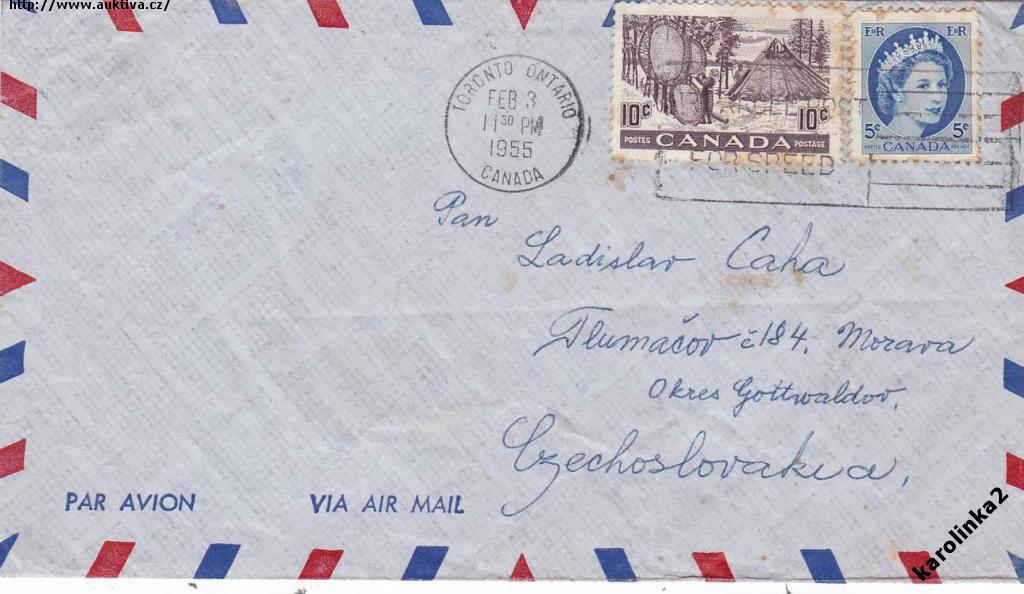 http://www.auktiva.cz/
TORONTO ONTARIO
FEB 3
11 30 PM
1955
CANADA
10¢ 10¢
POSTES CANADA POSTAGE
EIIR EIIR
5¢ 5¢
POSTES CANADA POSTAGE
FOR SPEED
Pan
Ladislav Caha
Tlumačov č 184. Morava
Okres Gottwaldov.
Czechoslovakia,
PAR AVION VIA AIR MAIL
karolinka2